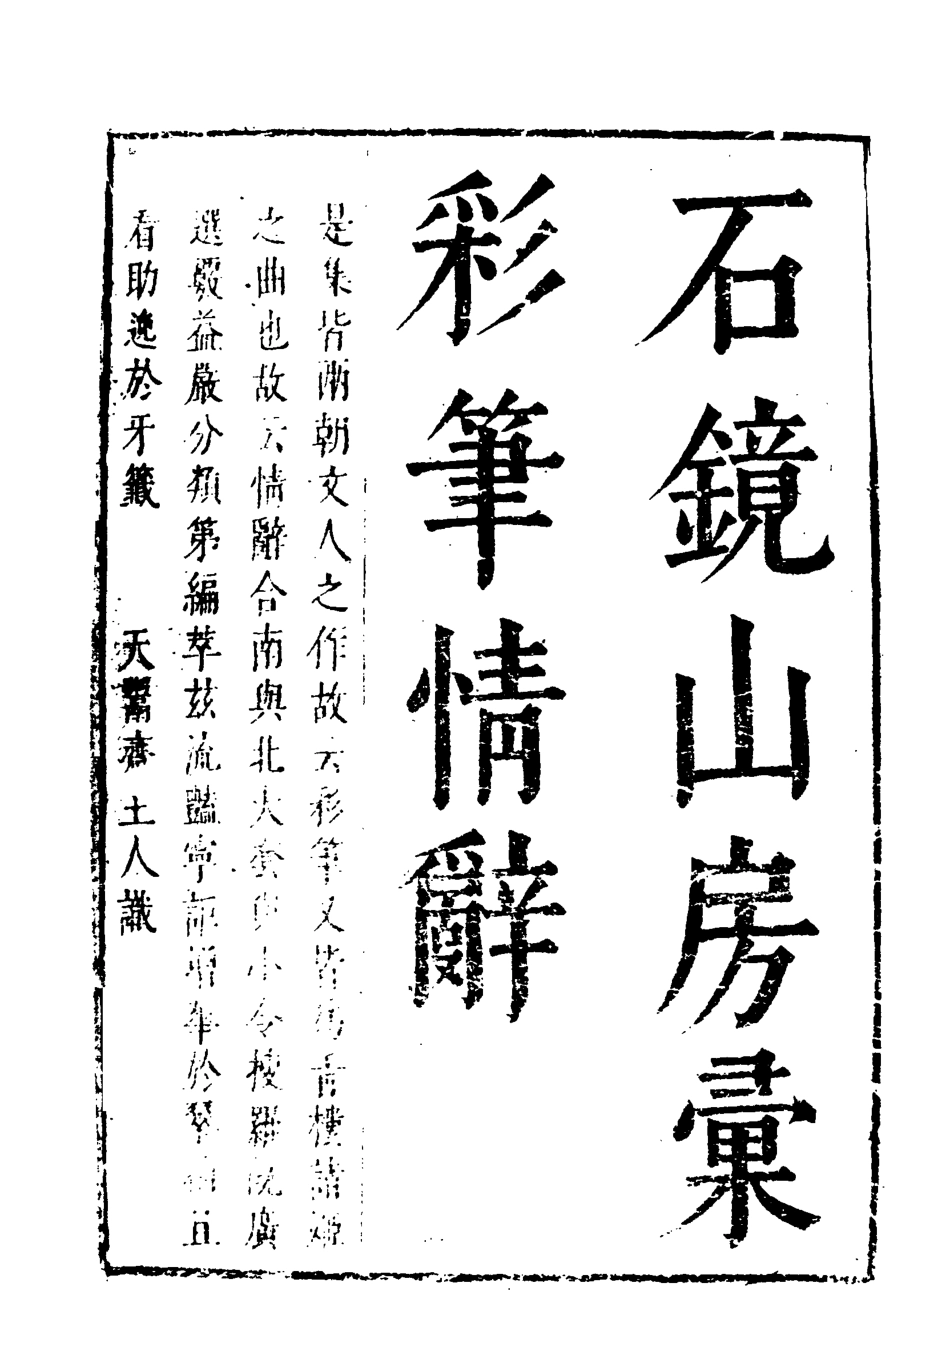 石鏡山房彙
彩筆情辭
是集皆兩朝文人之作故云彩筆又皆爲青樓諸姬
之曲也故云情辭合南與北大套與小令搜羅既廣
選擬益嚴分類第編萃兹流豔寧詎增華於琴 且
看助逸於牙籤 天 齋主人識